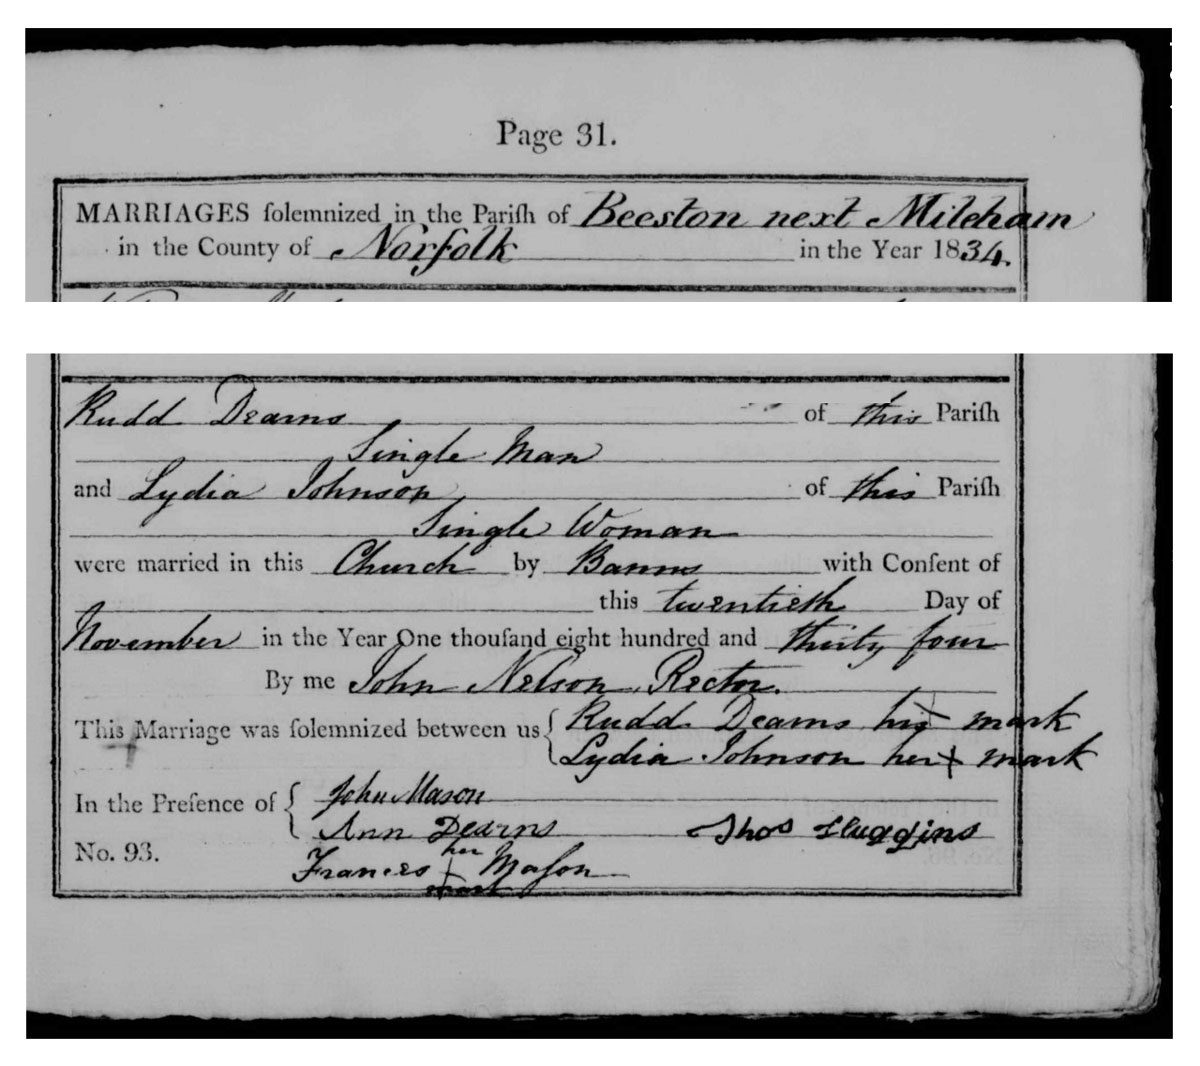 Page 31.
MARRIAGES ſolemnized in the Pariſh of Beeston next Mileham
in the County of Norfolk in the Year 1834.
Rudd Dearns of this Pariſh
Single Man
and Lydia Johnson of this Pariſh
Single Woman
were married in this Church by Banns with Conſent of
this twentieth Day of
November in the Year One thouſand eight hundred and thirty four
By me John Nelson, Rector.
This Marriage was ſolemnized between us { Rudd Dearns his x mark
Lydia Johnson her x mark
In the Preſence of { John Mason
Ann Dearns Thos Huggins
No. 93.
Frances her x mark Maſon